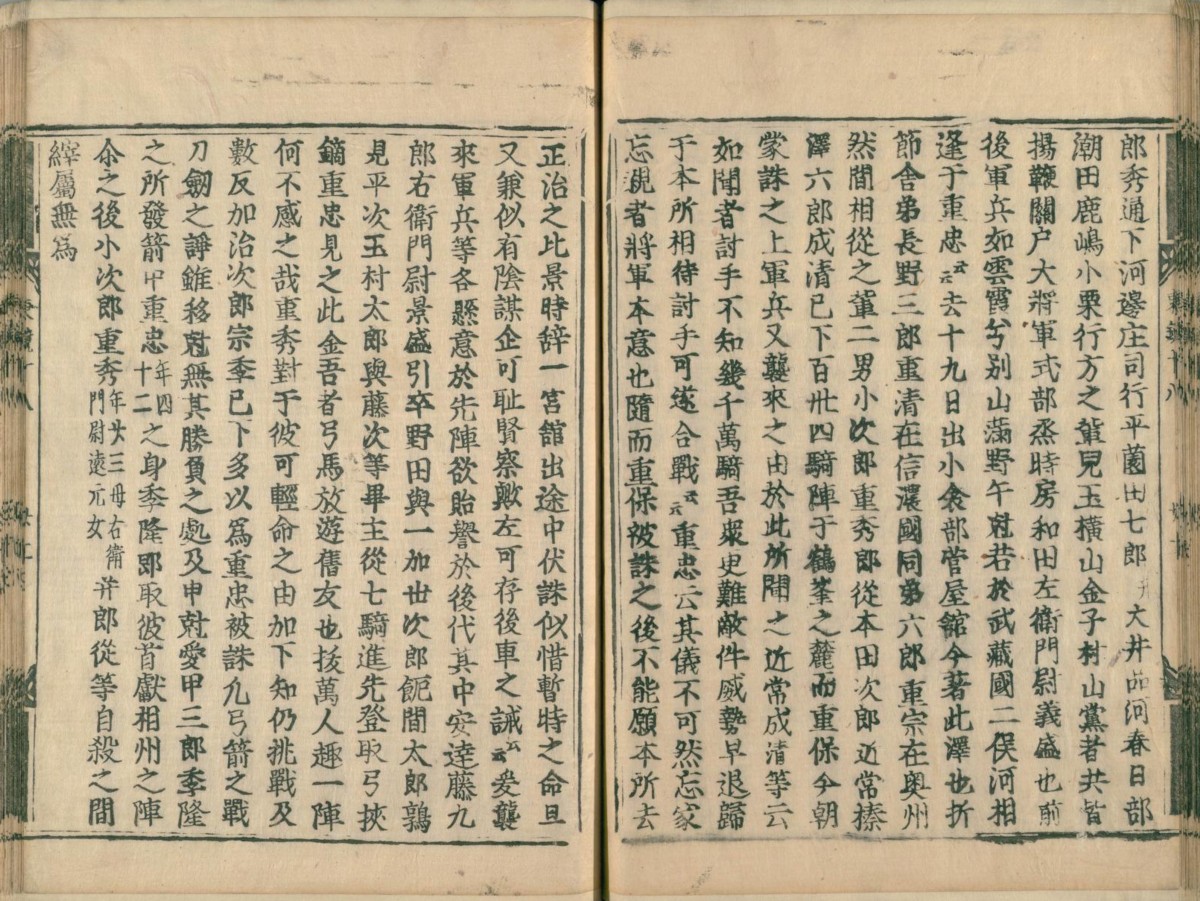 郎秀通下河邊庄司行平薗田七郎并大井品河春日部
潮田鹿嶋小栗行方之輩兒玉横山金子村山黨者共皆
揚鞭關戸大將軍式部丞時房和田左衛門尉義盛也前
後軍兵如雲霞兮列山滿野午尅若於武藏國二俣河相
逢于重忠云云去十九日出小衾郡菅屋舘今著此澤也折
節舎弟長野三郎重清在信濃國同弟六郎重宗在奥州
然間相從之輩二男小次郎重秀郎從本田次郎近常榛
澤六郎成清已下百卅四騎陣于鶴峯之麓而重保今朝
蒙誅之上軍兵又襲來之由於此所聞之近常成清等云
如聞者討手不知幾千萬騎吾衆更難敵件威勢早退歸
于本所相待討手可遂合戰云云重忠云其儀不可然忘家
忘親者將軍本意也隨而重保被誅之後不能願本所去
正治之比景時辞一宮舘出途中伏誅似惜暫時之命且
又兼似有陰謀企可耻賢察歟左可存後車之誡云云爰襲
來軍兵等各懸意於先陣欲貽譽於後代其中安達藤九
郎右衛門尉景盛引卒野田與一加世次郎飽間太郎鶉
見平次玉村太郎與藤次等畢主從七騎進先登取弓挾
鏑重忠見之此金吾者弓馬放遊舊友也抜萬人趣一陣
何不感之哉重秀對于彼可輕命之由加下知仍挑戰及
數反加治次郎宗季已下多以爲重忠被誅凢弓箭之戰
刀劔之諍雖移尅無其勝負之處及申尅愛甲三郎季隆
之所發箭中重忠年四十二之身季隆即取彼首獻相州之陣
尒之後小次郎重秀年廿三母右衛門尉遠元女并郎從等自殺之間
縡屬無爲